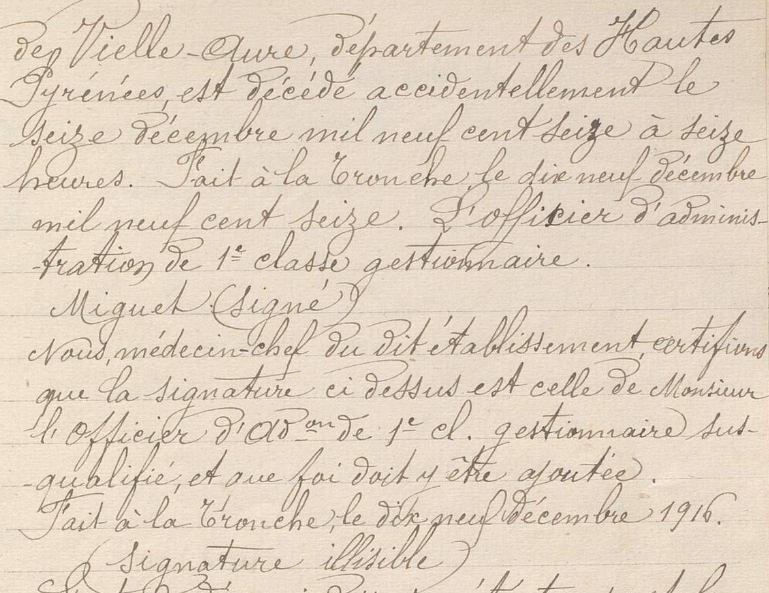 de Vielle-Aure, département des Hautes
Pyrénées, est décédé accidentellement le
seize décembre mil neuf cent seize à seize
heures. Fait à la Tronche, le dix neuf décembre
mil neuf cent seize. L'officier d'adminis-
-tration de 1e classe gestionnaire.
Miguet (signé)
Nous, médecin-chef du dit établissement, certifions
que la signature ci dessus est celle de Monsieur
l'Officier d'Adon de 1e cl. gestionnaire sus-
-qualifié, et que foi doit y être ajoutée.
Fait à la Tronche, le dix neuf décembre 1916.
(signature illisible)